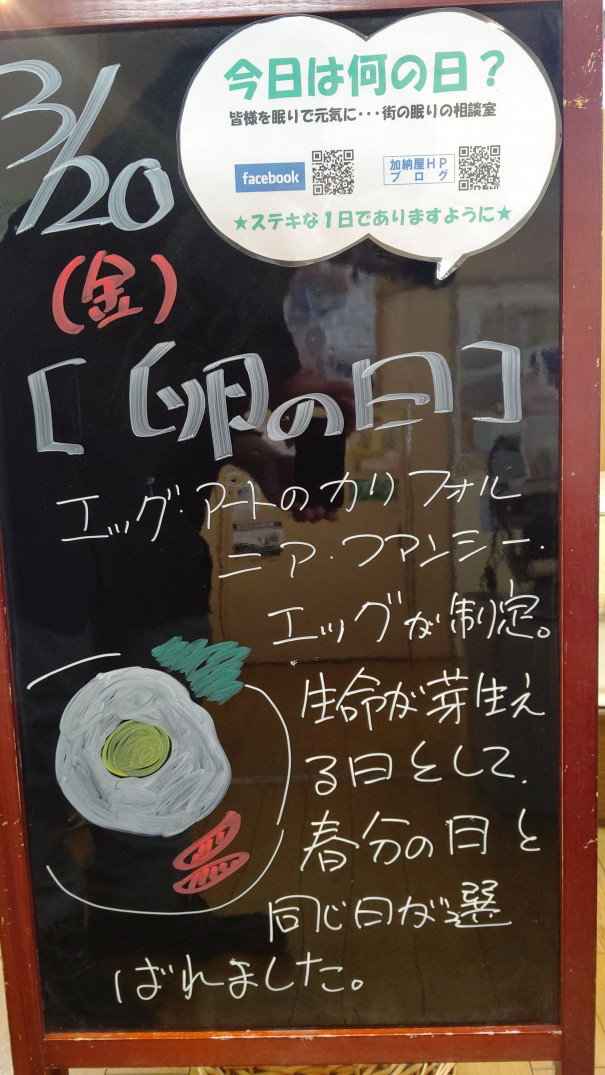 3/20
(金)
今日は何の日?
皆様を眠りで元気に・・・街の眠りの相談室
facebook
加納屋HP
ブログ
★ステキな1日でありますように★
[卵の日]
エッグ・アートのカリフォル
ニア・ファンシー・
エッグが制定。
生命が芽生え
る日として、
春分の日と
同じ日が選
ばれました。